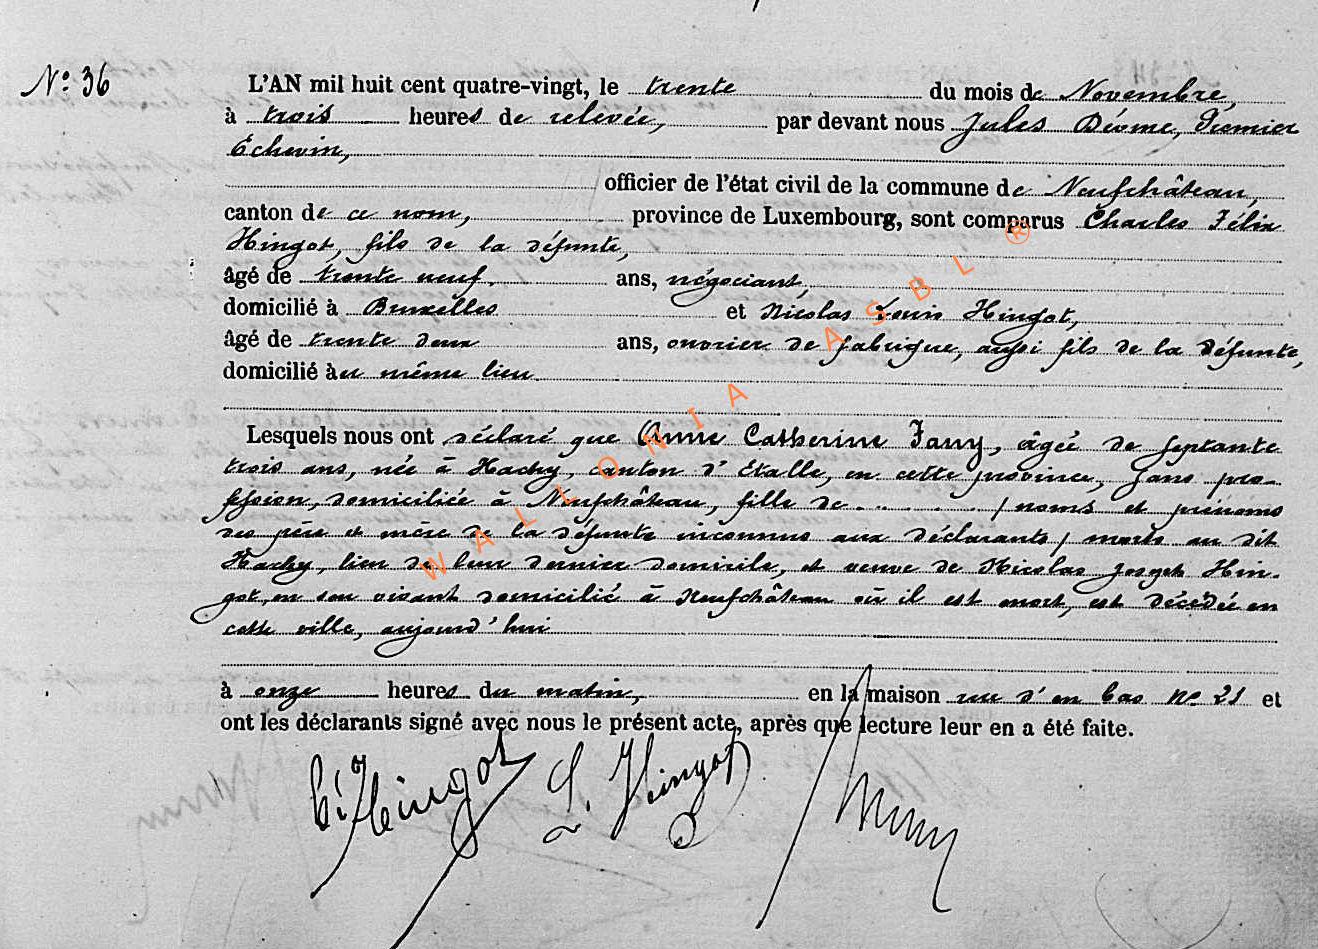 N° 36
L'AN mil huit cent quatre-vingt, le trente du mois de Novembre,
à trois heures de relevée, par devant nous Jules Déome, Premier
Echevin,
officier de l'état civil de la commune de Neufchâteau,
canton de ce nom, province de Luxembourg, sont comparus Charles Félix
Hingot, fils de la défunte,
âgé de trente neuf ans, négociant,
domicilié à Bruxelles et Nicolas Louis Hingot,
âgé de trente deux ans, ouvrier de fabrique, aussi fils de la défunte,
domicilié àu même lieu
Lesquels nous ont déclaré que Anne Catherine Fany, âgée de septante
trois ans, née à Hachy, canton d'Etalle, en cette province, sans pro-
fession, domiciliée à Neufchâteau, fille de . . . . . / noms et prénoms
des père et mère de la défunte inconnus aux déclarants / morts au dit
Hachy, lieu de leur dernier domicile, et veuve de Nicolas Joseph Hin-
got, en son vivant domicilié à Neufchâteau où il est mort, est décédée en
cette ville, aujourd'hui
à onze heures du matin, en la maison rue d'en bas N° 21 et
ont les déclarants signé avec nous le présent acte, après que lecture leur en a été faite.
Hingot L. Hingot
WALLONIA ASBL ®